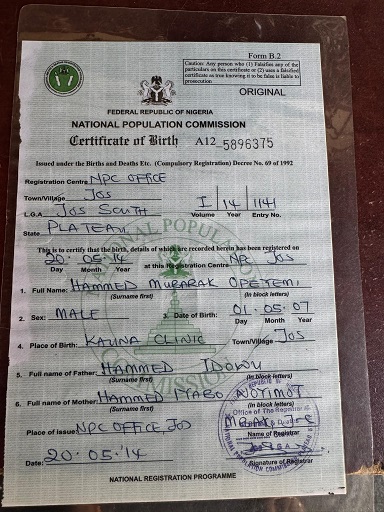 Form B.2
Caution: Any person who (1) Falsifies any of the
particulars on this certificate or (2) uses a falsified
certificate as true knowing it to be false is liable to
prosecution
ORIGINAL
FEDERAL REPUBLIC OF NIGERIA
NATIONAL POPULATION COMMISSION
Certificate of Birth A12 5896375
Issued under the Births and Deaths Etc. (Compulsory Registration) Decree No. 69 of 1992
Registration Centre NPC OFFICE
Town/Village JOS
L.G.A JOS SOUTH
I / 14 / 1141
Volume Year Entry No.
State PLATEAU
This is to certify that the birth, details of which are recorded herein has been registered on
20 . 05 . 14 at this Registration Centre NPC JOS
Day Month Year
1. Full Name: HAMMED MUBARAK OPEYEMI
(Surname first) (In block letters)
2. Sex: MALE 3. Date of Birth: 01 . 05 . 07
Day Month Year
4. Place of Birth: KAUNA CLINIC Town/Village JOS
5. Full name of Father: HAMMED IDOWU
(Surname first) (In block letters)
6. Full name of Mother: HAMMED IYABO
(Surname first) (In block letters)
Place of issue: NPC OFFICE JOS
Office of The Registrar
Name of Registrar
Date: 20 . 05 . '14
Signature of Registrar
NATIONAL REGISTRATION PROGRAMME